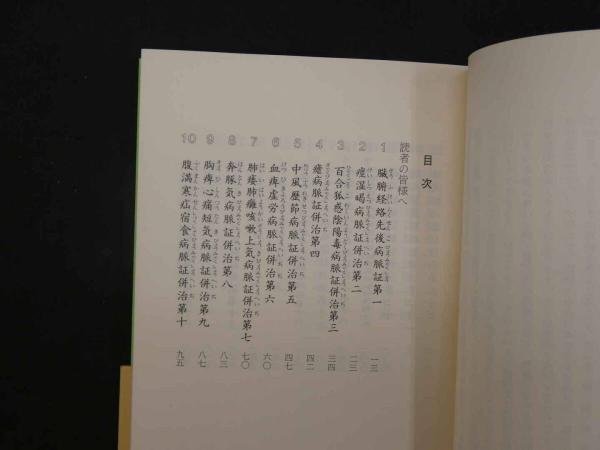 目次
読者の皆様へ
1 臓腑経絡先後病脈証第一 一三
2 痙湿暍病脈証併治第二 二三
3 百合狐惑陰陽毒病脈証併治第三 三四
4 瘧病脈証併治第四 四二
5 中風歴節病脈証併治第五 四七
6 血痺虚労病脈証併治第六 六〇
7 肺痿肺癰咳嗽上気病脈証併治第七 七〇
8 奔豚気病脈証併治第八 八三
9 胸痺心痛短気病脈証併治第九 八七
10 腹満寒疝宿食病脈証併治第十 九五